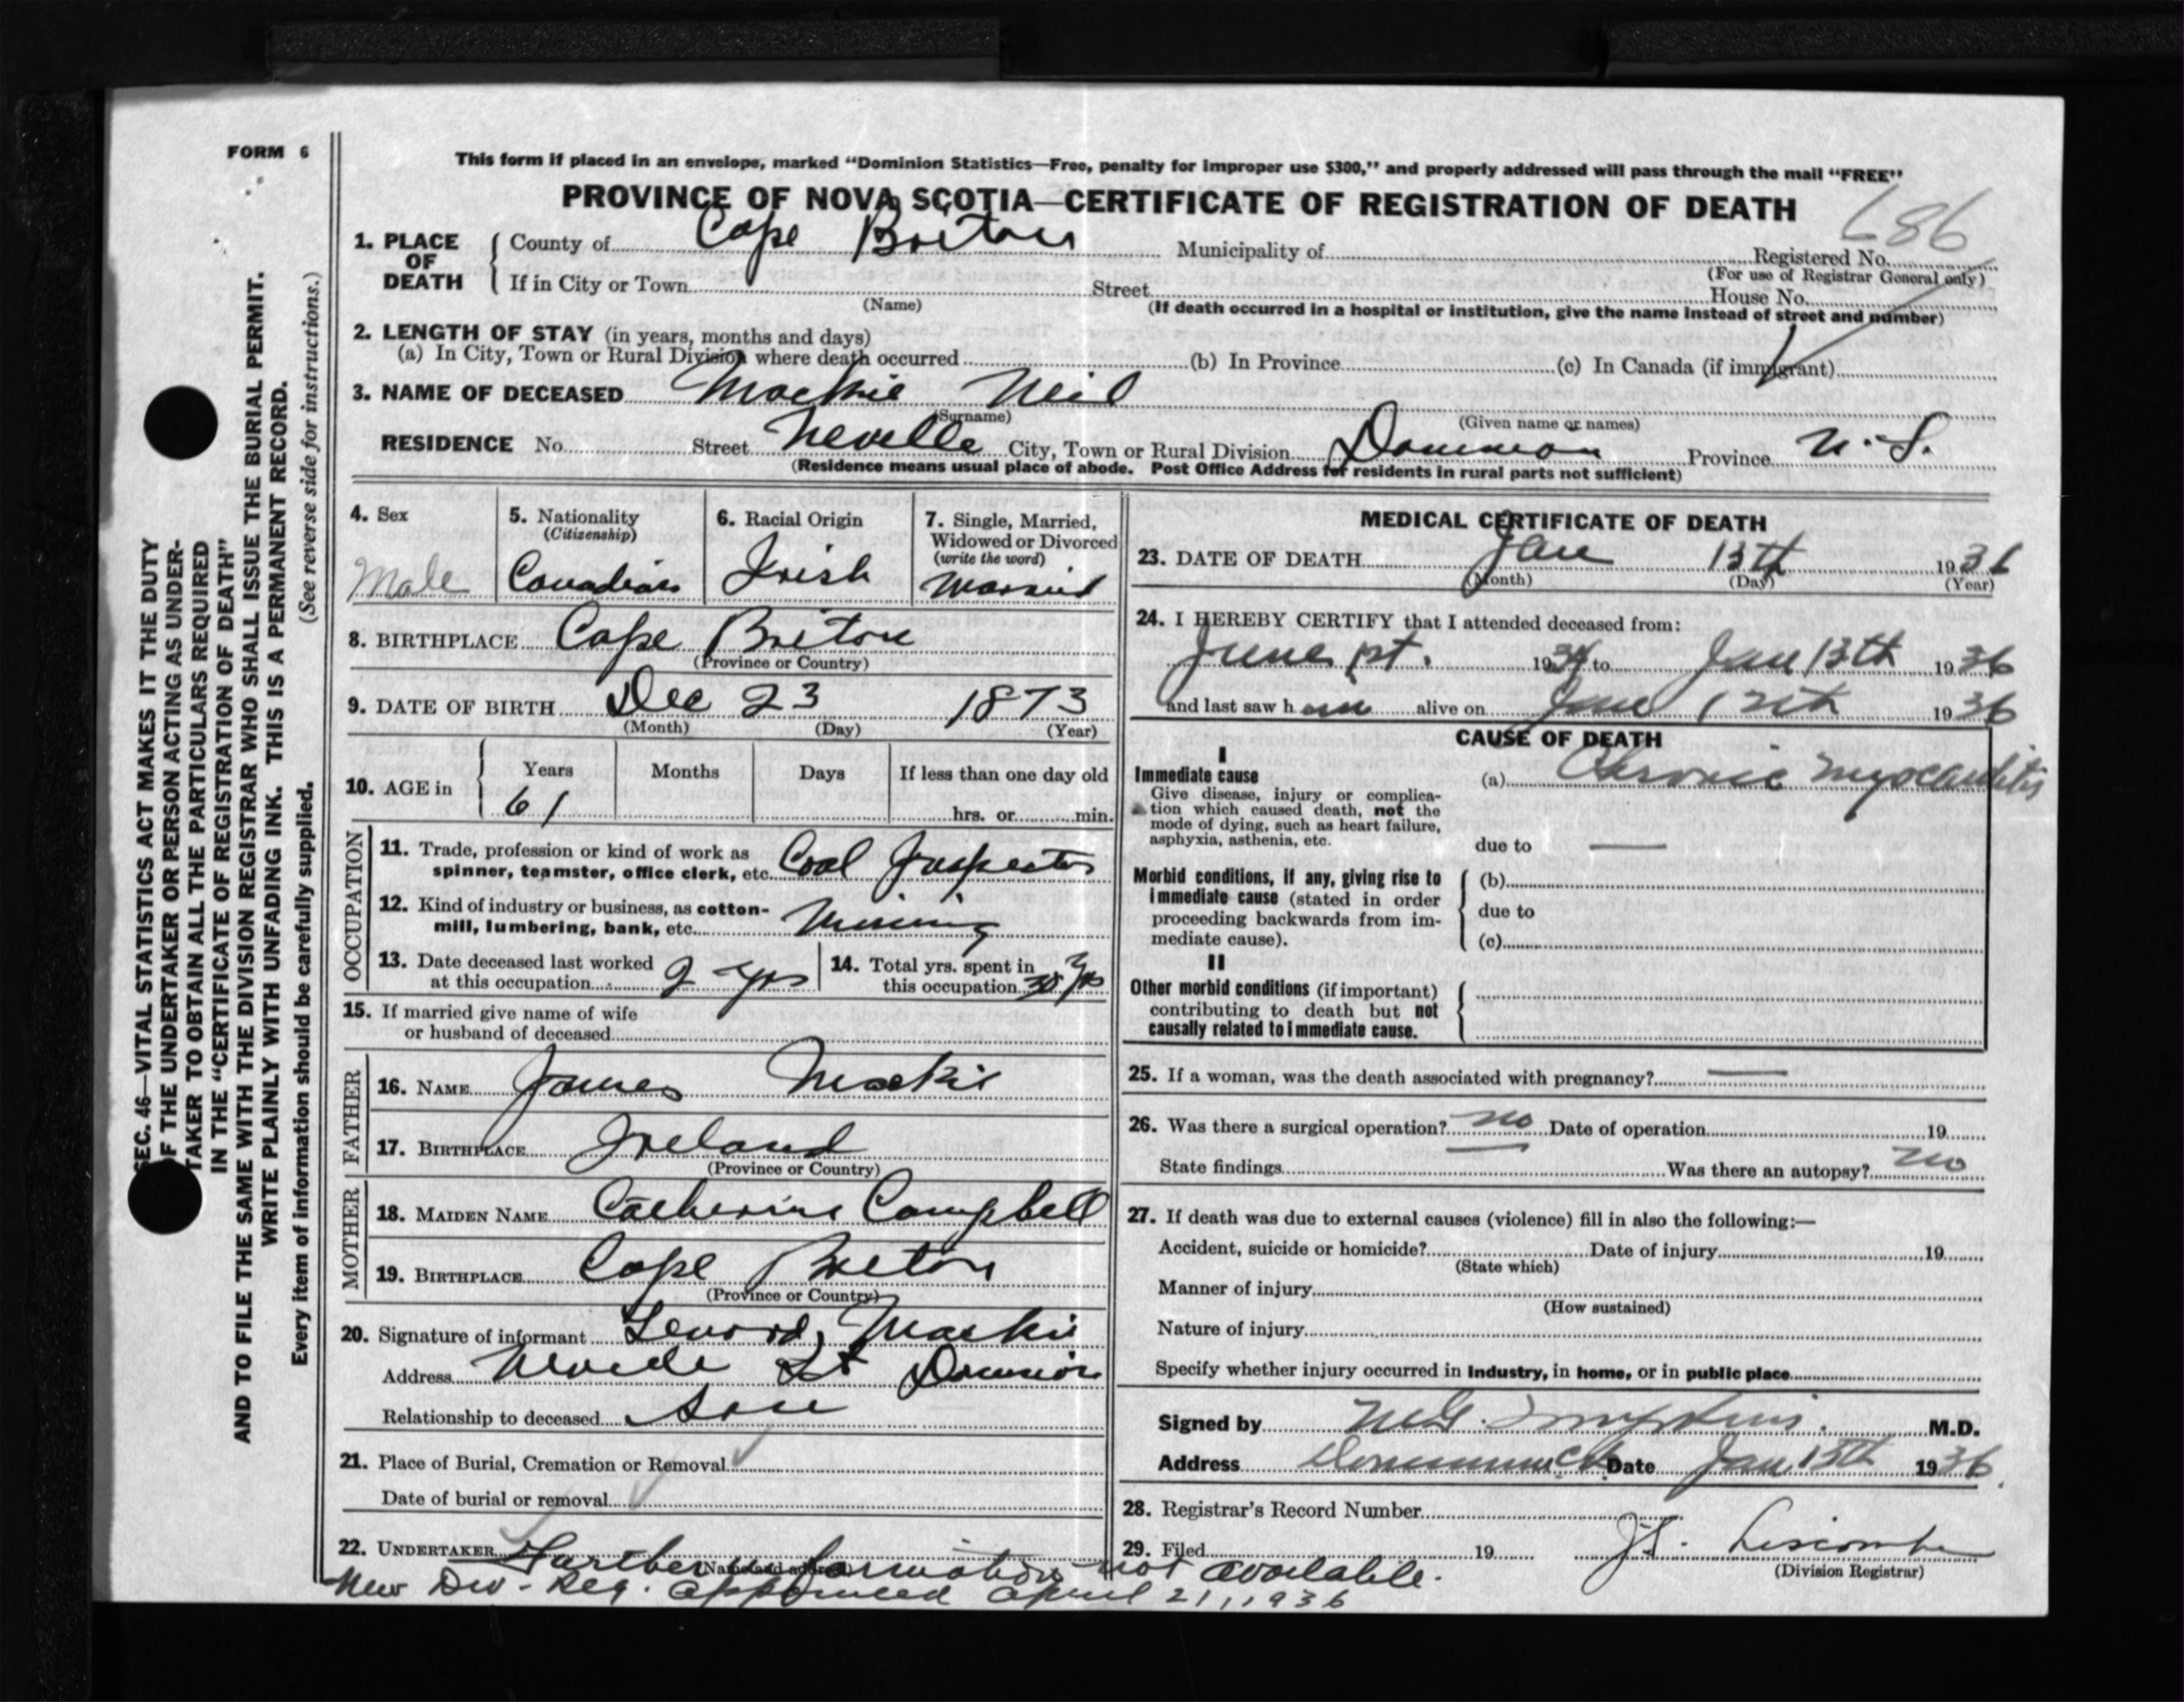 FORM 6
This form if placed in an envelope, marked “Dominion Statistics—Free, penalty for improper use $300,” and properly addressed will pass through the mail “FREE”
PROVINCE OF NOVA SCOTIA—CERTIFICATE OF REGISTRATION OF DEATH
686
1. PLACE OF DEATH
County of Cape Breton Municipality of Registered No.
(For use of Registrar General only)
If in City or Town Street House No.
(Name) (If death occurred in a hospital or institution, give the name instead of street and number)
2. LENGTH OF STAY (in years, months and days)
(a) In City, Town or Rural Division where death occurred (b) In Province (c) In Canada (if immigrant)
3. NAME OF DECEASED Mackie Neil
(Surname) (Given name or names)
RESIDENCE No. Street Neville City, Town or Rural Division Dominion Province N.S.
(Residence means usual place of abode. Post Office Address for residents in rural parts not sufficient)
4. Sex
Male
5. Nationality
(Citizenship)
Canadian
6. Racial Origin
Irish
7. Single, Married,
Widowed or Divorced
(write the word)
Married
8. BIRTHPLACE Cape Breton
(Province or Country)
9. DATE OF BIRTH Dec 23 1873
(Month) (Day) (Year)
10. AGE in
Years Months Days If less than one day old
61 hrs. or min.
OCCUPATION
11. Trade, profession or kind of work as
spinner, teamster, office clerk, etc. Coal Inspector
12. Kind of industry or business, as cotton-
mill, lumbering, bank, etc. Mining
13. Date deceased last worked
at this occupation 2 yrs
14. Total yrs. spent in
this occupation yrs
15. If married give name of wife
or husband of deceased
FATHER
16. NAME James Mackie
17. BIRTHPLACE Ireland
(Province or Country)
MOTHER
18. MAIDEN NAME Catherine Campbell
19. BIRTHPLACE Cape Breton
(Province or Country)
20. Signature of informant Lenord Mackie
Address Neville St Dominion
Relationship to deceased Son
21. Place of Burial, Cremation or Removal
Date of burial or removal
22. UNDERTAKER
(Name and address)
Further information not available.
New Div - Reg. appointed April 21, 1936
MEDICAL CERTIFICATE OF DEATH
23. DATE OF DEATH Jan 13th 1936
(Month) (Day) (Year)
24. I HEREBY CERTIFY that I attended deceased from:
June 1st. 1934 to Jan 13th 1936
and last saw him alive on Jan 12th 1936
CAUSE OF DEATH
I
Immediate cause
Give disease, injury or complica-
tion which caused death, not the
mode of dying, such as heart failure,
asphyxia, asthenia, etc.
(a) Chronic Myocarditis
due to —
Morbid conditions, if any, giving rise to
immediate cause (stated in order
proceeding backwards from im-
mediate cause).
(b)
due to
(c)
II
Other morbid conditions (if important)
contributing to death but not
causally related to immediate cause.
25. If a woman, was the death associated with pregnancy? —
26. Was there a surgical operation? no Date of operation 19
State findings Was there an autopsy? no
27. If death was due to external causes (violence) fill in also the following:—
Accident, suicide or homicide? Date of injury 19
(State which)
Manner of injury
(How sustained)
Nature of injury
Specify whether injury occurred in industry, in home, or in public place
Signed by M.G. Tompkins. M.D.
Address Date Jan 15th 1936.
28. Registrar's Record Number
29. Filed 19 Liscombe
(Division Registrar)
SEC. 46—VITAL STATISTICS ACT MAKES IT THE DUTY
OF THE UNDERTAKER OR PERSON ACTING AS UNDER-
TAKER TO OBTAIN ALL THE PARTICULARS REQUIRED
IN THE “CERTIFICATE OF REGISTRATION OF DEATH”
AND TO FILE THE SAME WITH THE DIVISION REGISTRAR WHO SHALL ISSUE THE BURIAL PERMIT.
WRITE PLAINLY WITH UNFADING INK. THIS IS A PERMANENT RECORD.
Every item of information should be carefully supplied. (See reverse side for instructions.)